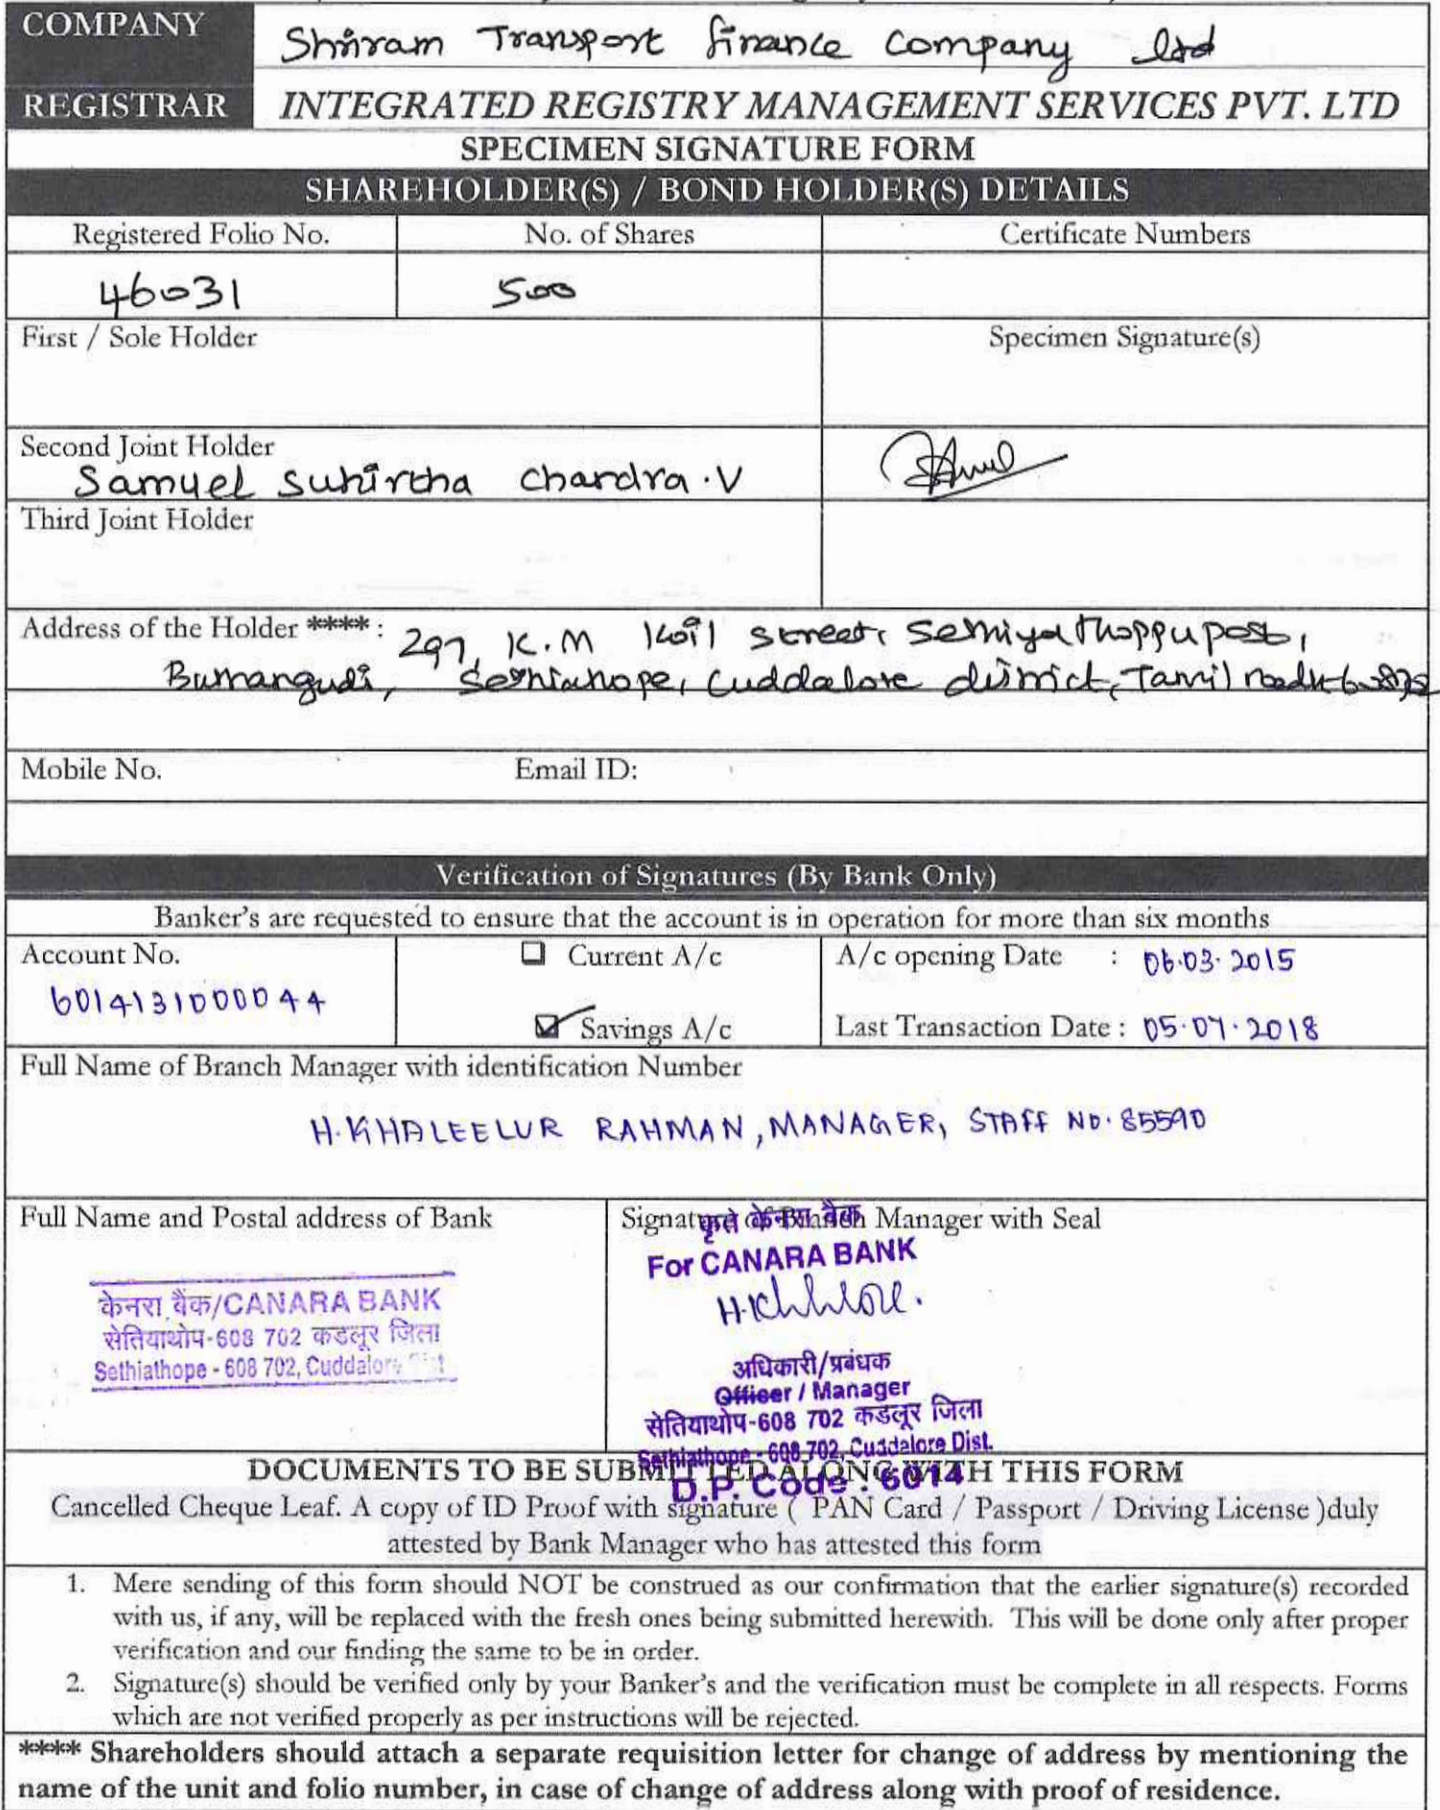 COMPANY Shriram Transport finance company ltd
REGISTRAR INTEGRATED REGISTRY MANAGEMENT SERVICES PVT. LTD
SPECIMEN SIGNATURE FORM
SHAREHOLDER(S) / BOND HOLDER(S) DETAILS
Registered Folio No. No. of Shares Certificate Numbers
46031 500
First / Sole Holder Specimen Signature(s)
Second Joint Holder
Samuel Suhirtha Chandra.V
Third Joint Holder
Address of the Holder **** : 297, K.M Koil street, Semiyathoppu post,
Cuddalore district, Tamil nadu
Mobile No. Email ID:
Verification of Signatures (By Bank Only)
Banker's are requested to ensure that the account is in operation for more than six months
Account No. Current A/c A/c opening Date : 06.03.2015
6014131000044
Savings A/c Last Transaction Date : 05.07.2018
Full Name of Branch Manager with identification Number
H.KHALEELUR RAHMAN, MANAGER, STAFF NO. 85590
Full Name and Postal address of Bank
केनरा बैंक/CANARA BANK
सेतियाथोप-608 702 कडलूर जिला
Sethiathope - 608 702, Cuddalore Dist
Signature of Branch Manager with Seal
कृते केनरा बैंक
For CANARA BANK
अधिकारी/प्रबंधक
Officer / Manager
सेतियाथोप-608 702 कडलूर जिला
Sethiathope - 608 702, Cuddalore Dist.
D.P. Code : 6014
DOCUMENTS TO BE SUBMITTED ALONG WITH THIS FORM
Cancelled Cheque Leaf. A copy of ID Proof with signature ( PAN Card / Passport / Driving License )duly
attested by Bank Manager who has attested this form
1. Mere sending of this form should NOT be construed as our confirmation that the earlier signature(s) recorded
with us, if any, will be replaced with the fresh ones being submitted herewith. This will be done only after proper
verification and our finding the same to be in order.
2. Signature(s) should be verified only by your Banker's and the verification must be complete in all respects. Forms
which are not verified properly as per instructions will be rejected.
**** Shareholders should attach a separate requisition letter for change of address by mentioning the
name of the unit and folio number, in case of change of address along with proof of residence.